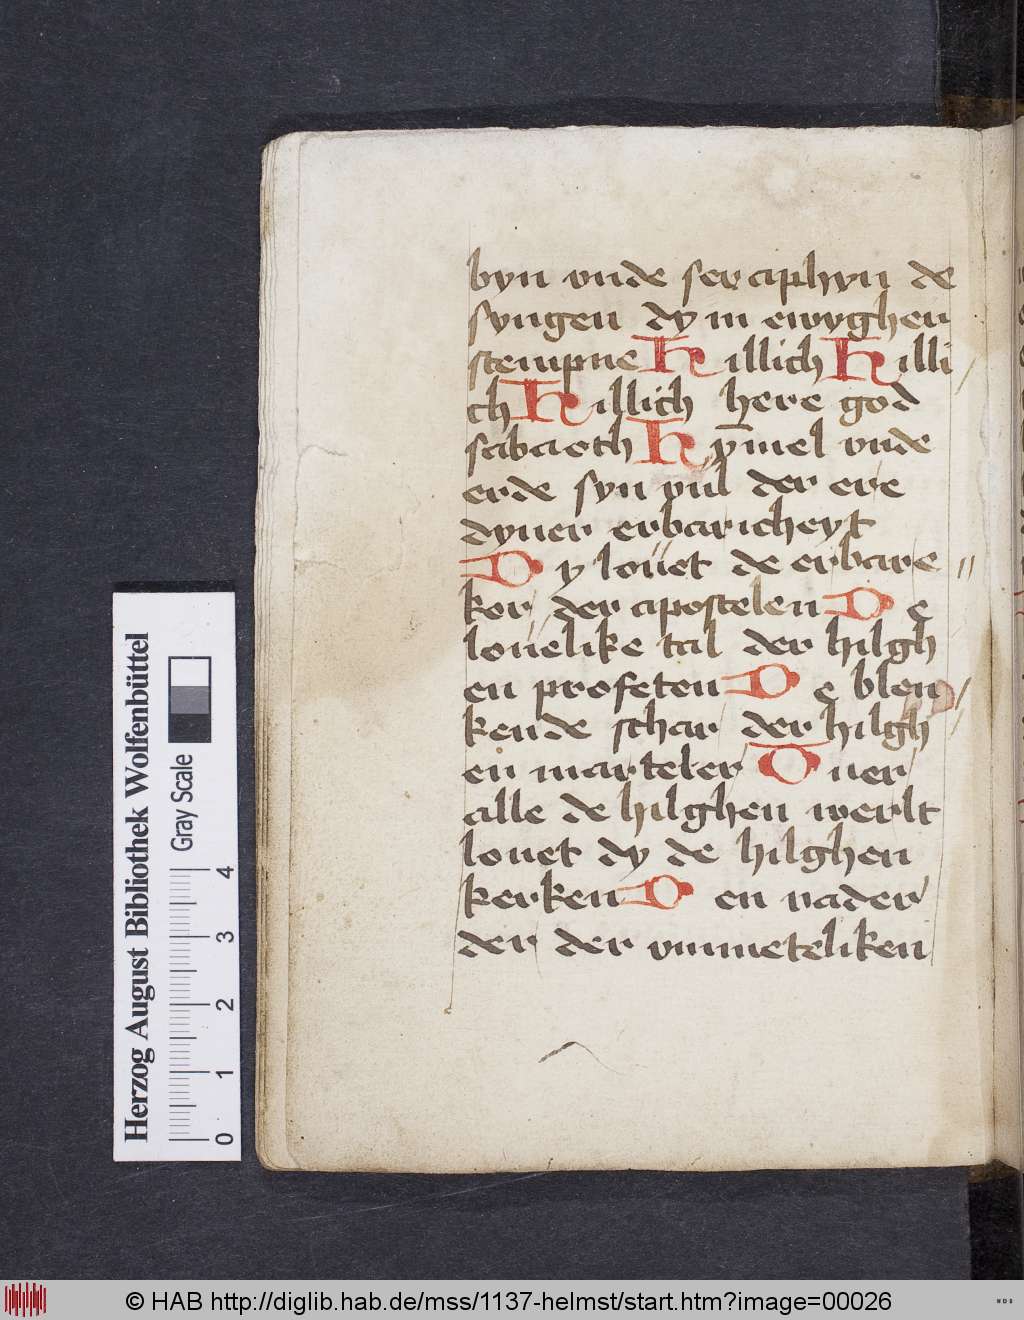 byn vnde seraphyn de
syngen dy in ewyghen
stempne Hillich Hilli
ch Hillich here god
sabaoth Hȳmel vnde
erde syn vul der ere
dyner erbaricheyt
Dy louet de erbare
kor der apostelen De
louelike tal der hilgh
en profeten De blen
kende schar der hilgh
en marteler Ouer
alle de hilghen werlt
louet dy de hilghen
kerken Den vader
der der vnmeteliken
Herzog August Bibliothek Wolfenbüttel
Gray Scale
0 1 2 3 4
© HAB http://diglib.hab.de/mss/1137-helmst/start.htm?image=00026